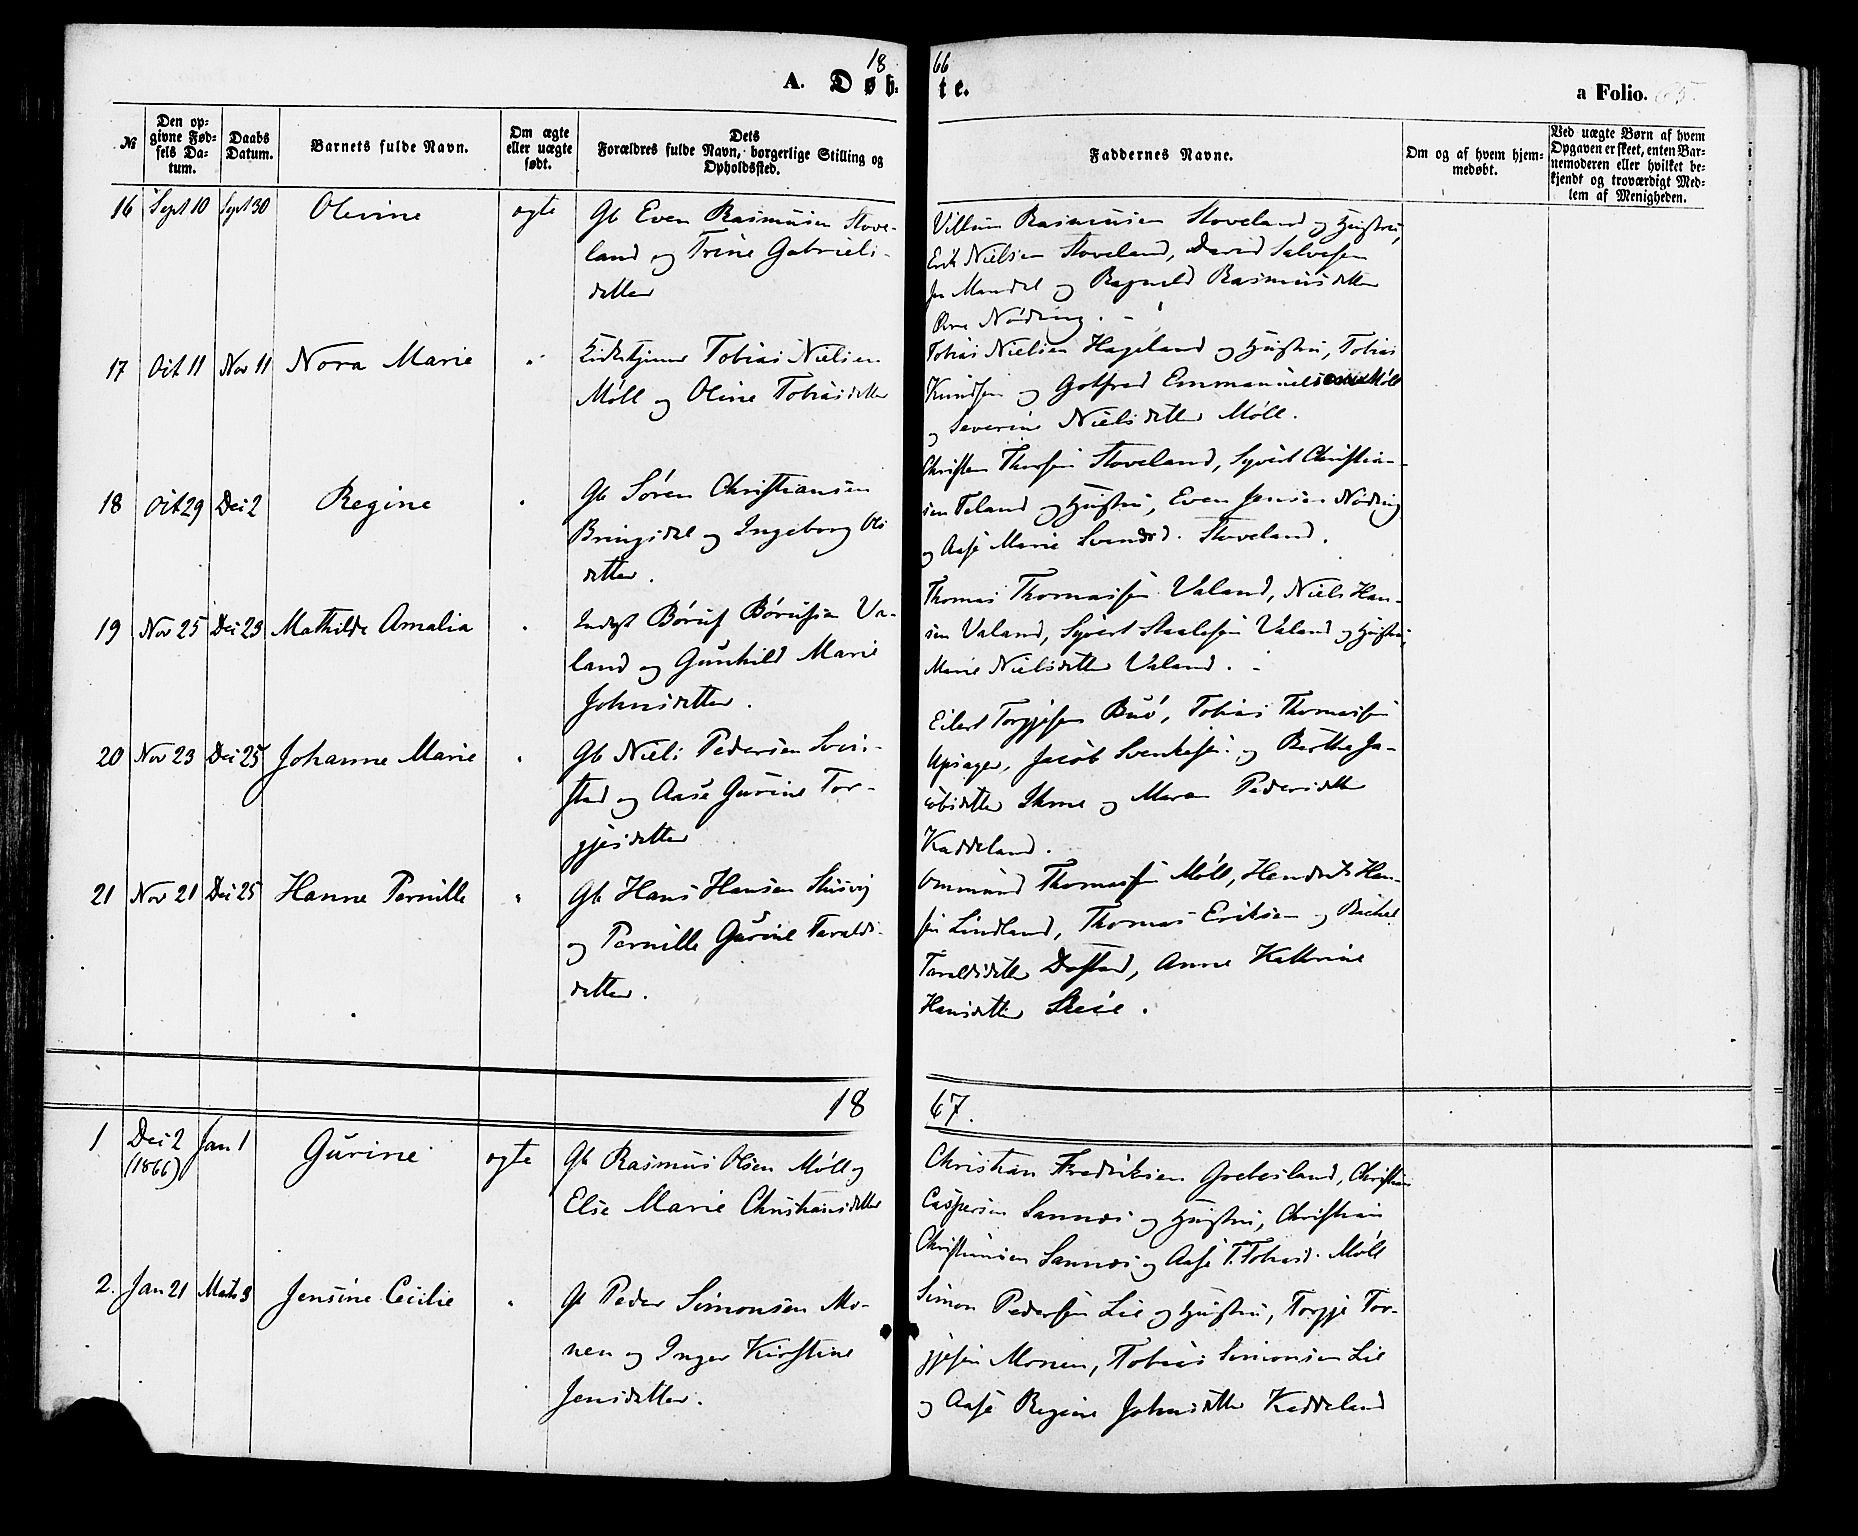 1866
A. Døbte.
a Folio.
№
Den opgivne Fødsels Datum.
Daabs Datum.
Barnets fulde Navn.
Om ægte eller uægte født.
Dets Forældres fulde Navn, borgerlige Stilling og Opholdssted.
Faddernes Navne.
Om og af hvem hjemmedøbt.
Ved uægte Børn af hvem Opgaven er skeet, enten Barnemoderen eller hvilket bekjendt og troværdigt Medlem af Menigheden.
16 Sept 10 Sept 30 Olevine ægte
Gb Even Rasmusen Stove-
land og Trine Gabriels-
datter
Villum Rasmusen Stoveland og Hustru,
Erik Nielsen Stoveland, David Salvesen
fra Mandal og Ragnild Rasmusdatter
Nøding.
17 Oct 11 Nov 11 Nora Marie "
Kirketjener Tobias Nielsen
Møll og Oline Tobiasdatter
Tobias Nielsen Hageland og Hustru, Tobias
Knudsen og Gotfred Emmanuelsen Møll
og Severine Nielsdatter Møll.
18 Oct 29 Dec 2 Regine "
Gb Søren Christiansen
Bringsdal og Ingeborg Ols
datter.
Christen Stoveland, Syvert Christian-
sen og Hustru, Even Jensen Nøding
og Aase Marie Svendsd. Stoveland.
19 Nov 25 Dec 23 Mathilde Amalia "
Inderst Børuf Børufsen Va-
land og Gunhild Marie
Johnsdatter.
Thomas Thomassen Valand, Niels Han-
sen Valand, Syvert Staalesen Valand og Hustru,
Marie Nielsdatter Valand.
20 Nov 23 Dec 25 Johanne Marie "
Gb Niels Pedersen
stad og Aase Gurine Tor-
gjesdatter
Eilert Torgjesen Buø, Tobias Thomassen
Upsager, Jacob Svenkesen og Berthe Ja-
cobsdatter og Maren Pedersdatter
Kaddeland.
21 Nov 21 Dec 25 Hanne Pernille "
Gb Hans Hansen
og Pernille Gurine Taralds-
datter.
Ommund Thomassen Møll, Hendrik Han-
sen Lindland, Thomas Eriksen og Rachel
Taraldsdatter Døstad, Anne Kathrine
Hansdatter
1867.
1 Dec 2 (1866) Jan 1 Gurine ægte
Gb Rasmus Olsen Møll og
Else Marie Christiansdatter
Christian Fredriksen Grebesland, Christian
Caspersen Sannæs og Hustru, Christian
Christiansen Sannæs og Aase T. Tobiasd. Møll
2. Jan 21 Marts 3 Jensine Cecilie "
Gb Peder Simonsen Mo-
nen og Inger Kirstine
Jensdatter.
Simon Pedersen Lie og Hustru, Torgje Tor-
gjesen Monen, Tobias Simonsen Lie
og Aase Regine Johnsdatter Kaddeland